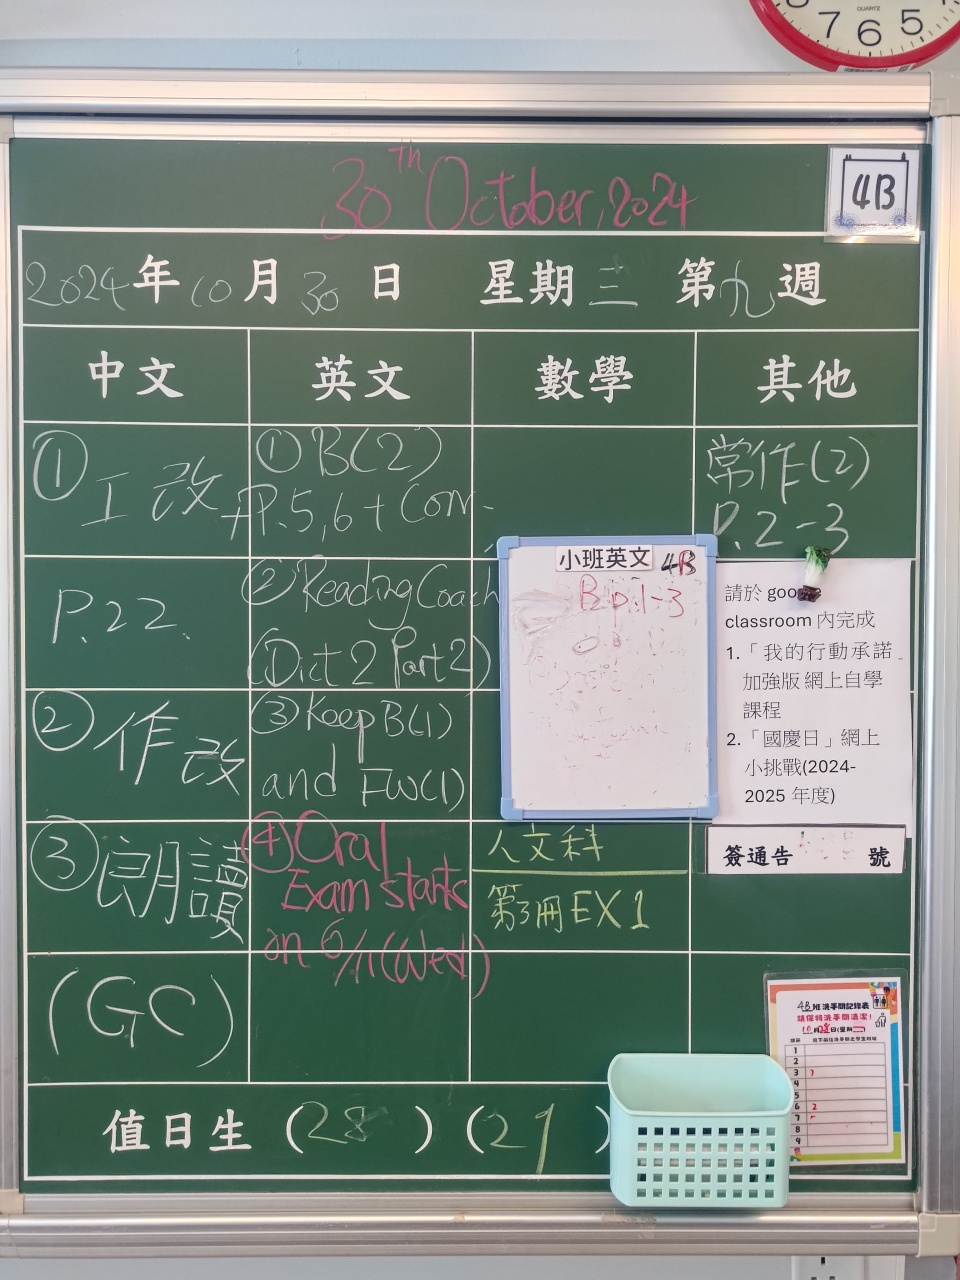 7 6 5
QUARTZ
30th October, 2024
4B
2024年10月30日 星期三 第九週
中文 英文 數學 其他
① 工改
P.22.
② 作改
③ 朗讀
(GC)
① B(2)
P.5,6 + Corr.
② Reading Coach
(Dict 2 Part 2)
③ Keep B(1)
and FW(1)
④ Oral
Exam starts
on 6/11 (Wed)
小班英文 4B
B p.1-3
人文科
第3冊 EX 1
常作(2)
P.2-3
請於 goo
classroom 內完成
1.「我的行動承諾
加強版網上自學
課程
2.「國慶日」網上
小挑戰(2024-
2025 年度)
簽通告 號
4B班洗手間記錄表
請保持洗手間清潔!
1
2
3
4
6 2
7
8
9
值日生 (28) (29)